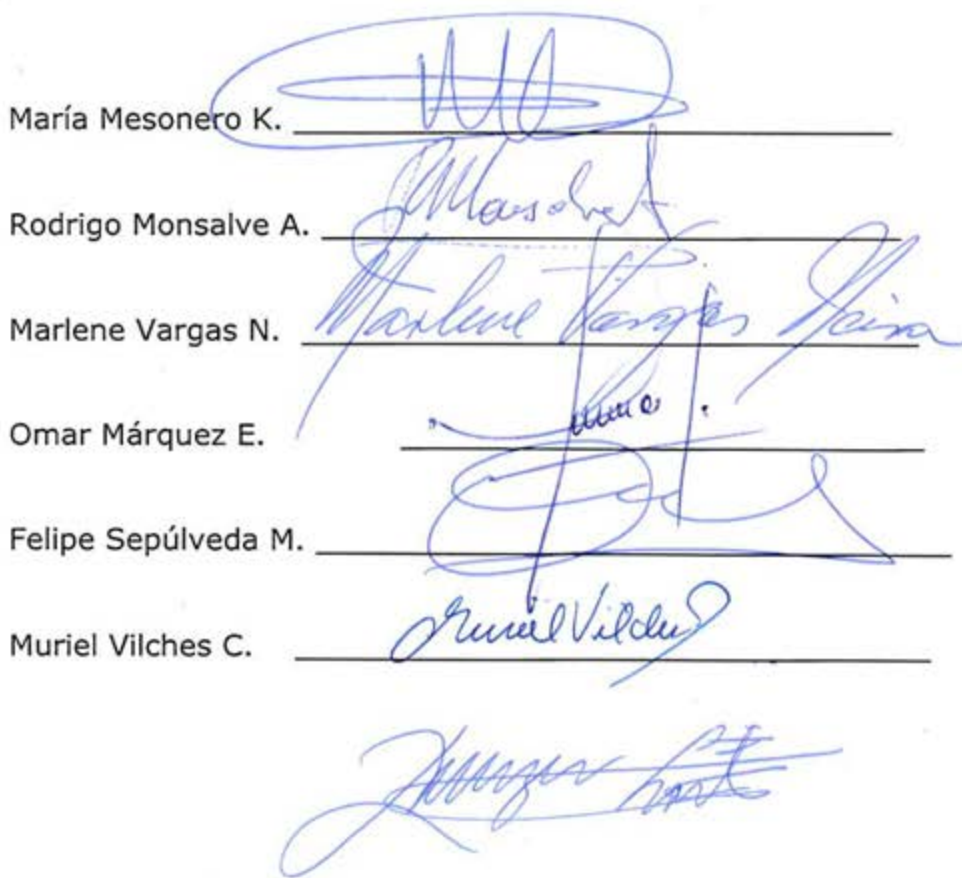 María Mesonero K.
Rodrigo Monsalve A. Monsalve
Marlene Vargas N. Marlene Vargas Neira
Omar Márquez E.
Felipe Sepúlveda M.
Muriel Vilches C. Muriel Vilches